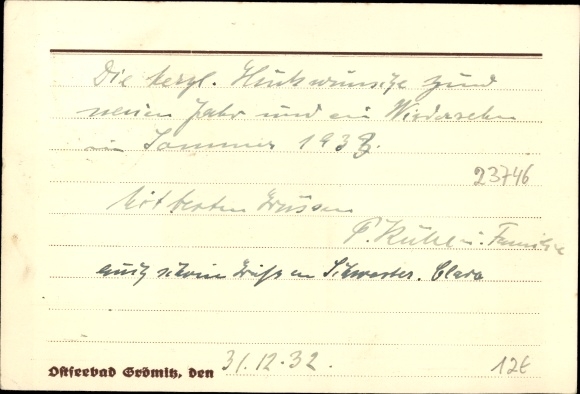 Die herzl. Glückwünsche zum
neuen Jahr und ein Wiedersehen
im Sommer 1933.
23746
Mit besten Grüssen
P. Kühl u. Familie
auch schöne Grüße an Schwester Clara
Ostseebad Grömitz, den 31.12.32.
12€